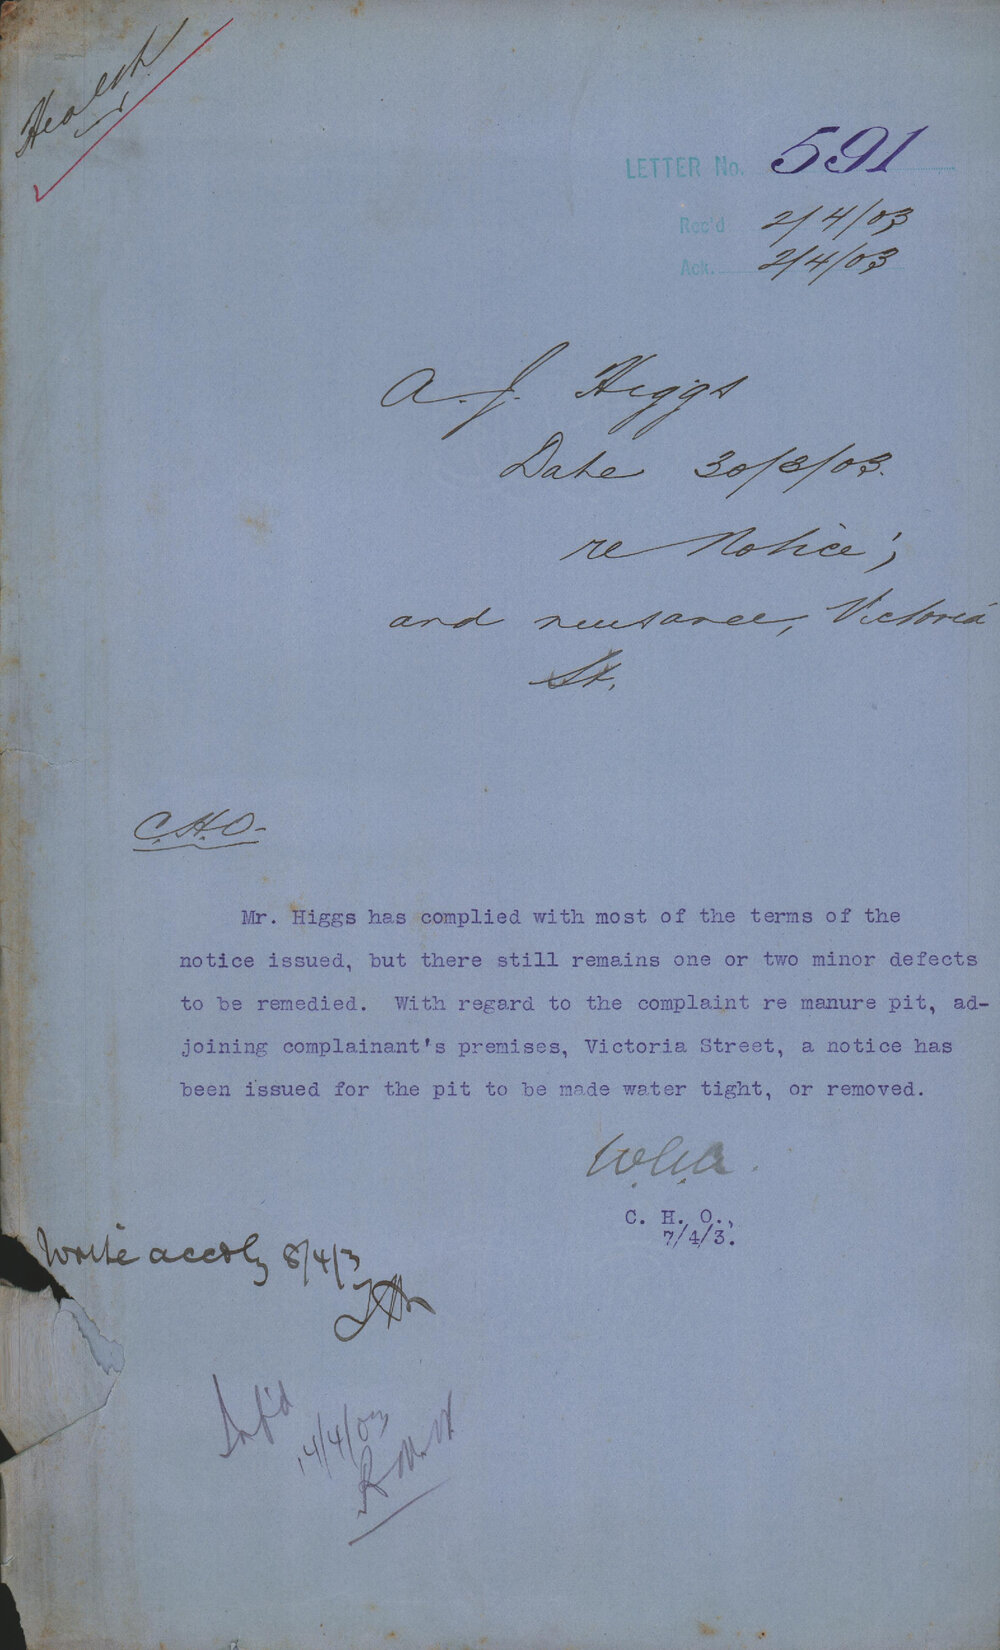 Health
LETTER No. 591
Rec'd 2/4/03
Ack. 2/4/03
A. J. Higgs
Date 30/3/03.
re Notice;
and nuisance, Victoria
St.
C.H.O.
Mr. Higgs has complied with most of the terms of the
notice issued, but there still remains one or two minor defects
to be remedied. With regard to the complaint re manure pit, ad-
joining complainant's premises, Victoria Street, a notice has
been issued for the pit to be made water tight, or removed.
C. H. O.,
7/4/3.
Write accdly 8/4/3
Inf'd
14/4/03